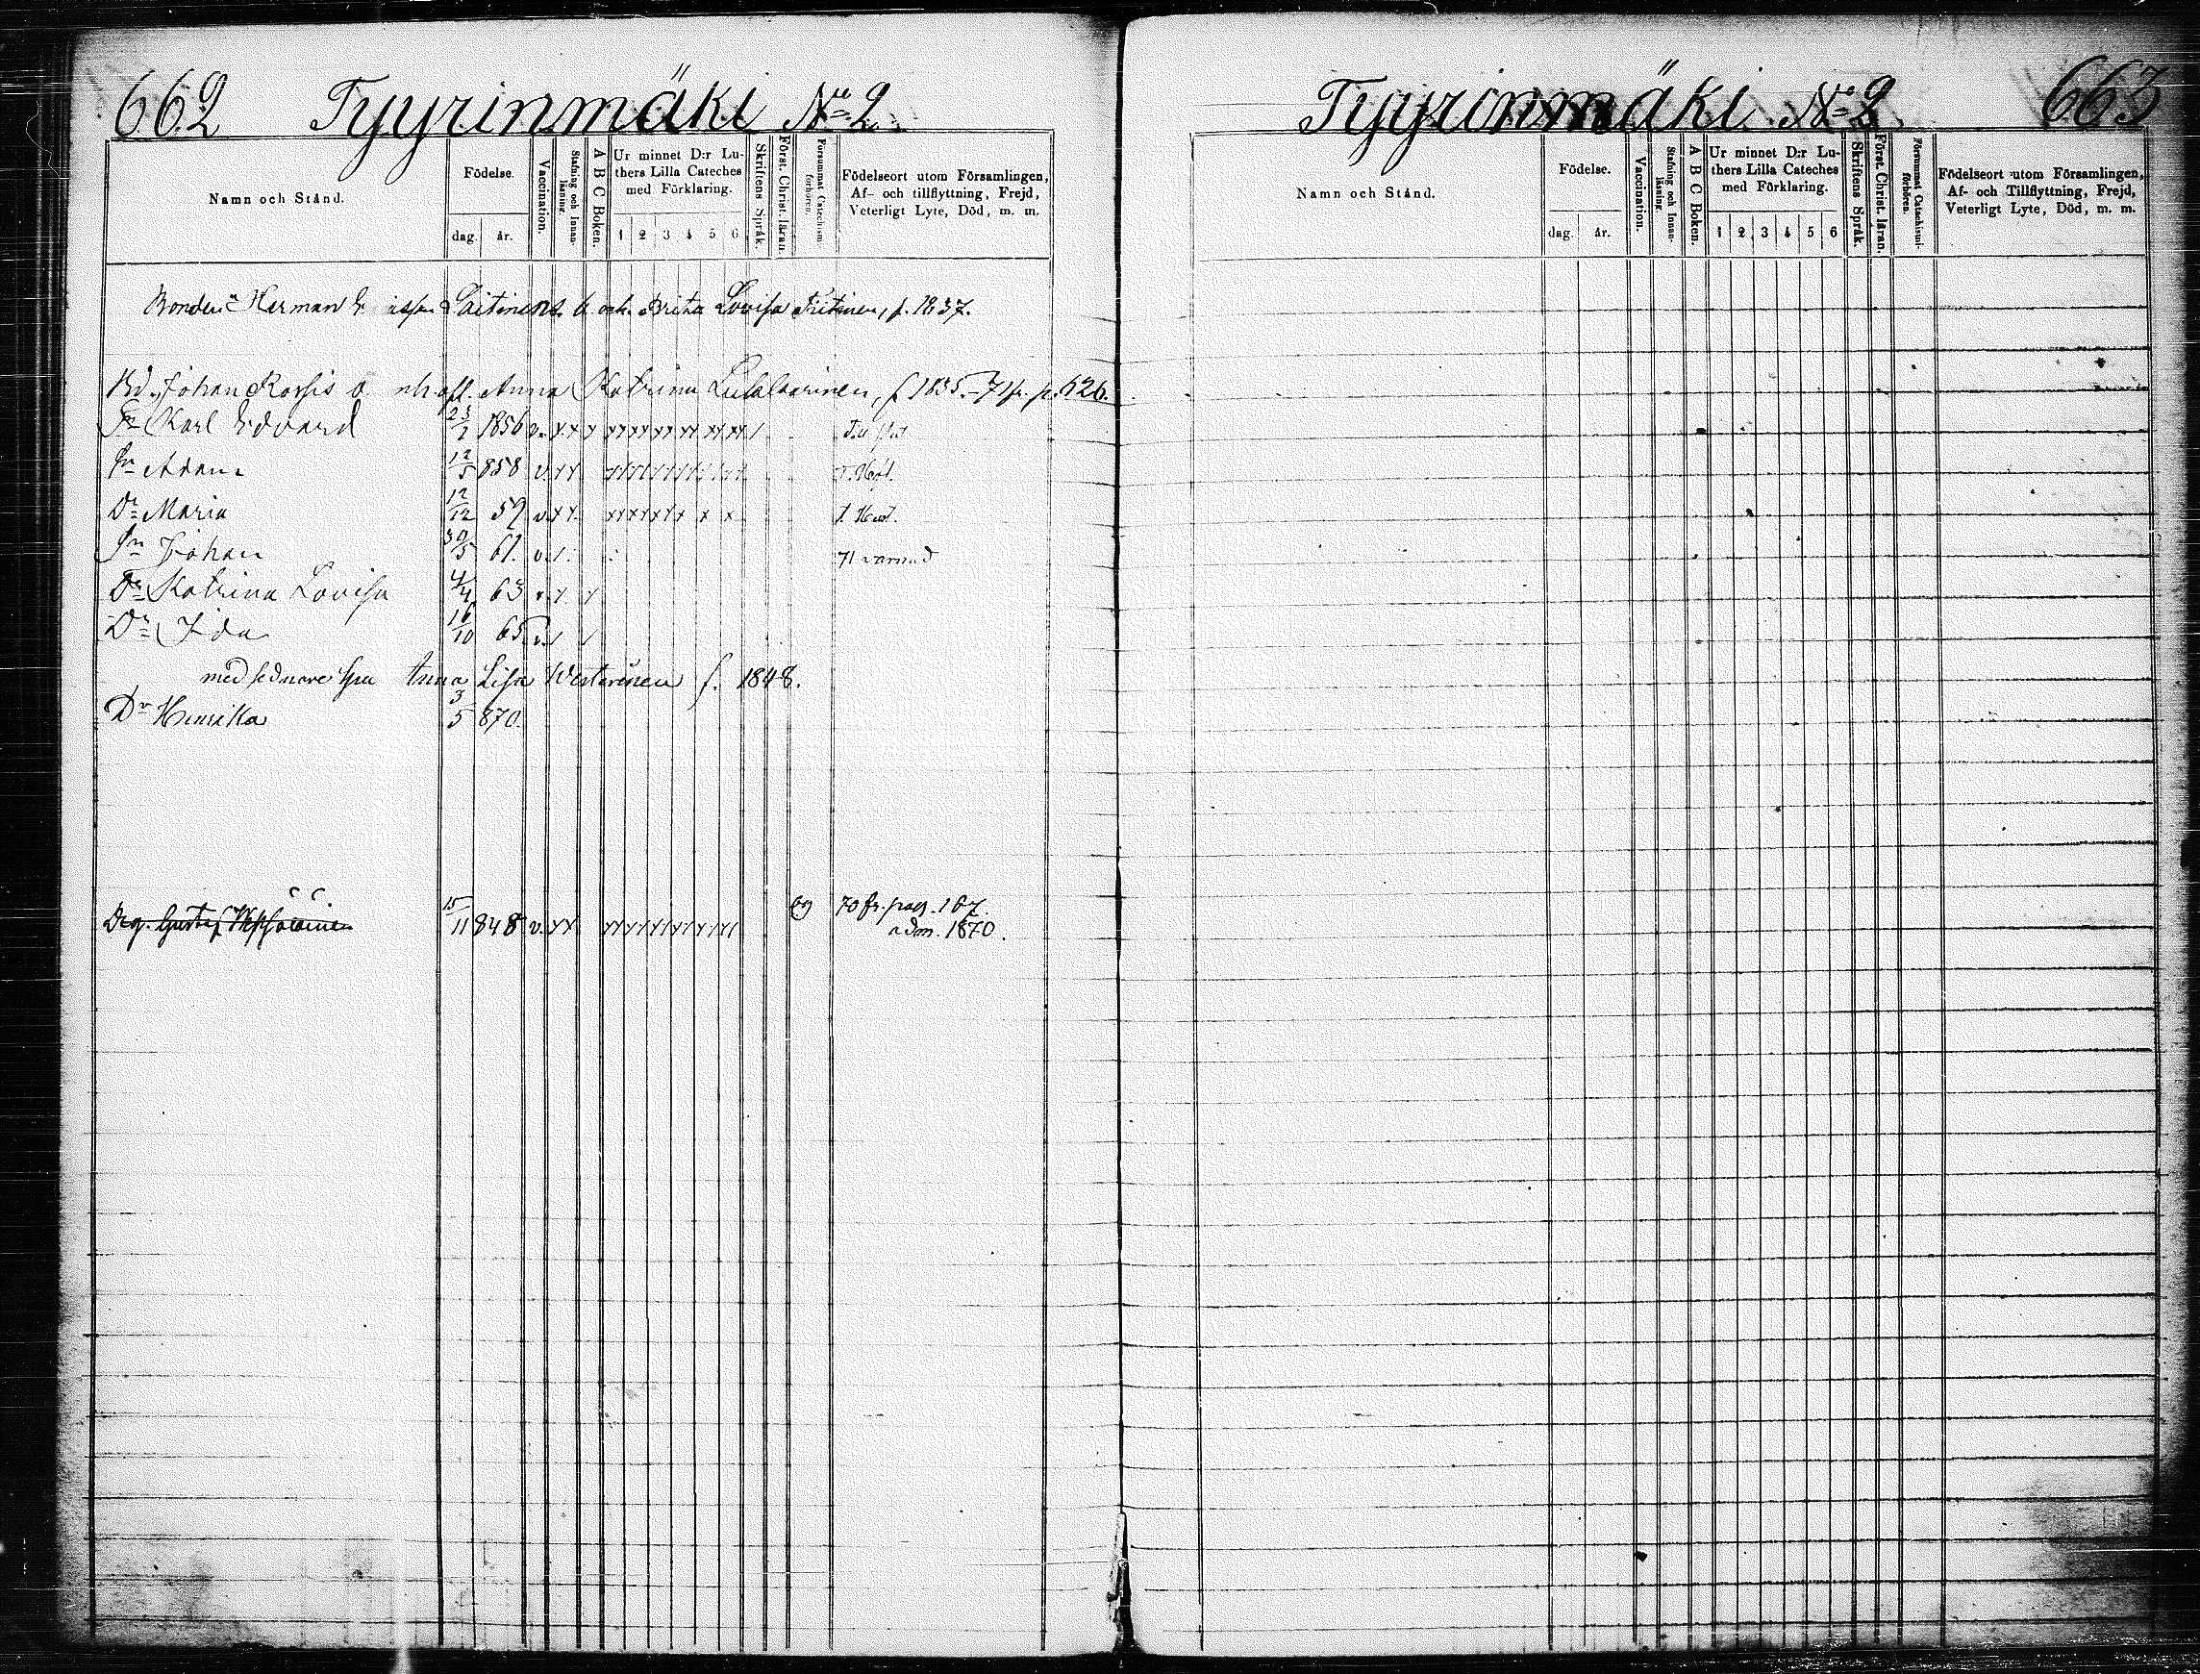 662 Tyyrinmäki No 2.
Namn och Stånd.
Födelse.
dag. år.
Vaccination.
Stafning och Innanläsning.
A B C Boken.
Ur minnet D:r Luthers Lilla Cateches med Förklaring.
1 2 3 4 5 6
Skriftens Språk.
Först. Christ. läran.
Försummat Catechismiförhören.
Födelseort utom Församlingen, Af- och tillflyttning, Frejd, Veterligt Lyte, Död, m. m.
Bonden Herman Laitinens b. och Brita Lovisa f. 1837.
Bd. Johan Anna Katrina f 1835. 71 fr. p. 626.
Karl Edvard 23/1 1856 v.
Sn Adam 12/5 858 v.
Dr Maria 12/12 59 v.
Sn Johan 30/5 61. v. 71
Dr Katrina Lovisa 4/4 63 v.
Dr Ida 16/10 65 v.
med sednare Anna Lisa Westerinen f. 1848.
Dr Henrika 3/5 870.
Drg. Gustaf 15/11 848 v. 69 70 fr. pag. 167.
adm. 1870.
Tyyrinmäki No 2 663
Namn och Stånd.
Födelse.
dag. år.
Vaccination.
Stafning och Innanläsning
A B C Boken.
Ur minnet D:r Luthers Lilla Cateches med Förklaring.
1 2 3 4 5 6
Skriftens Språk.
Först. Christ. läran.
Försummat Catechismiförhören.
Födelseort utom Församlingen, Af- och Tillflyttning, Frejd, Veterligt Lyte, Död, m. m.